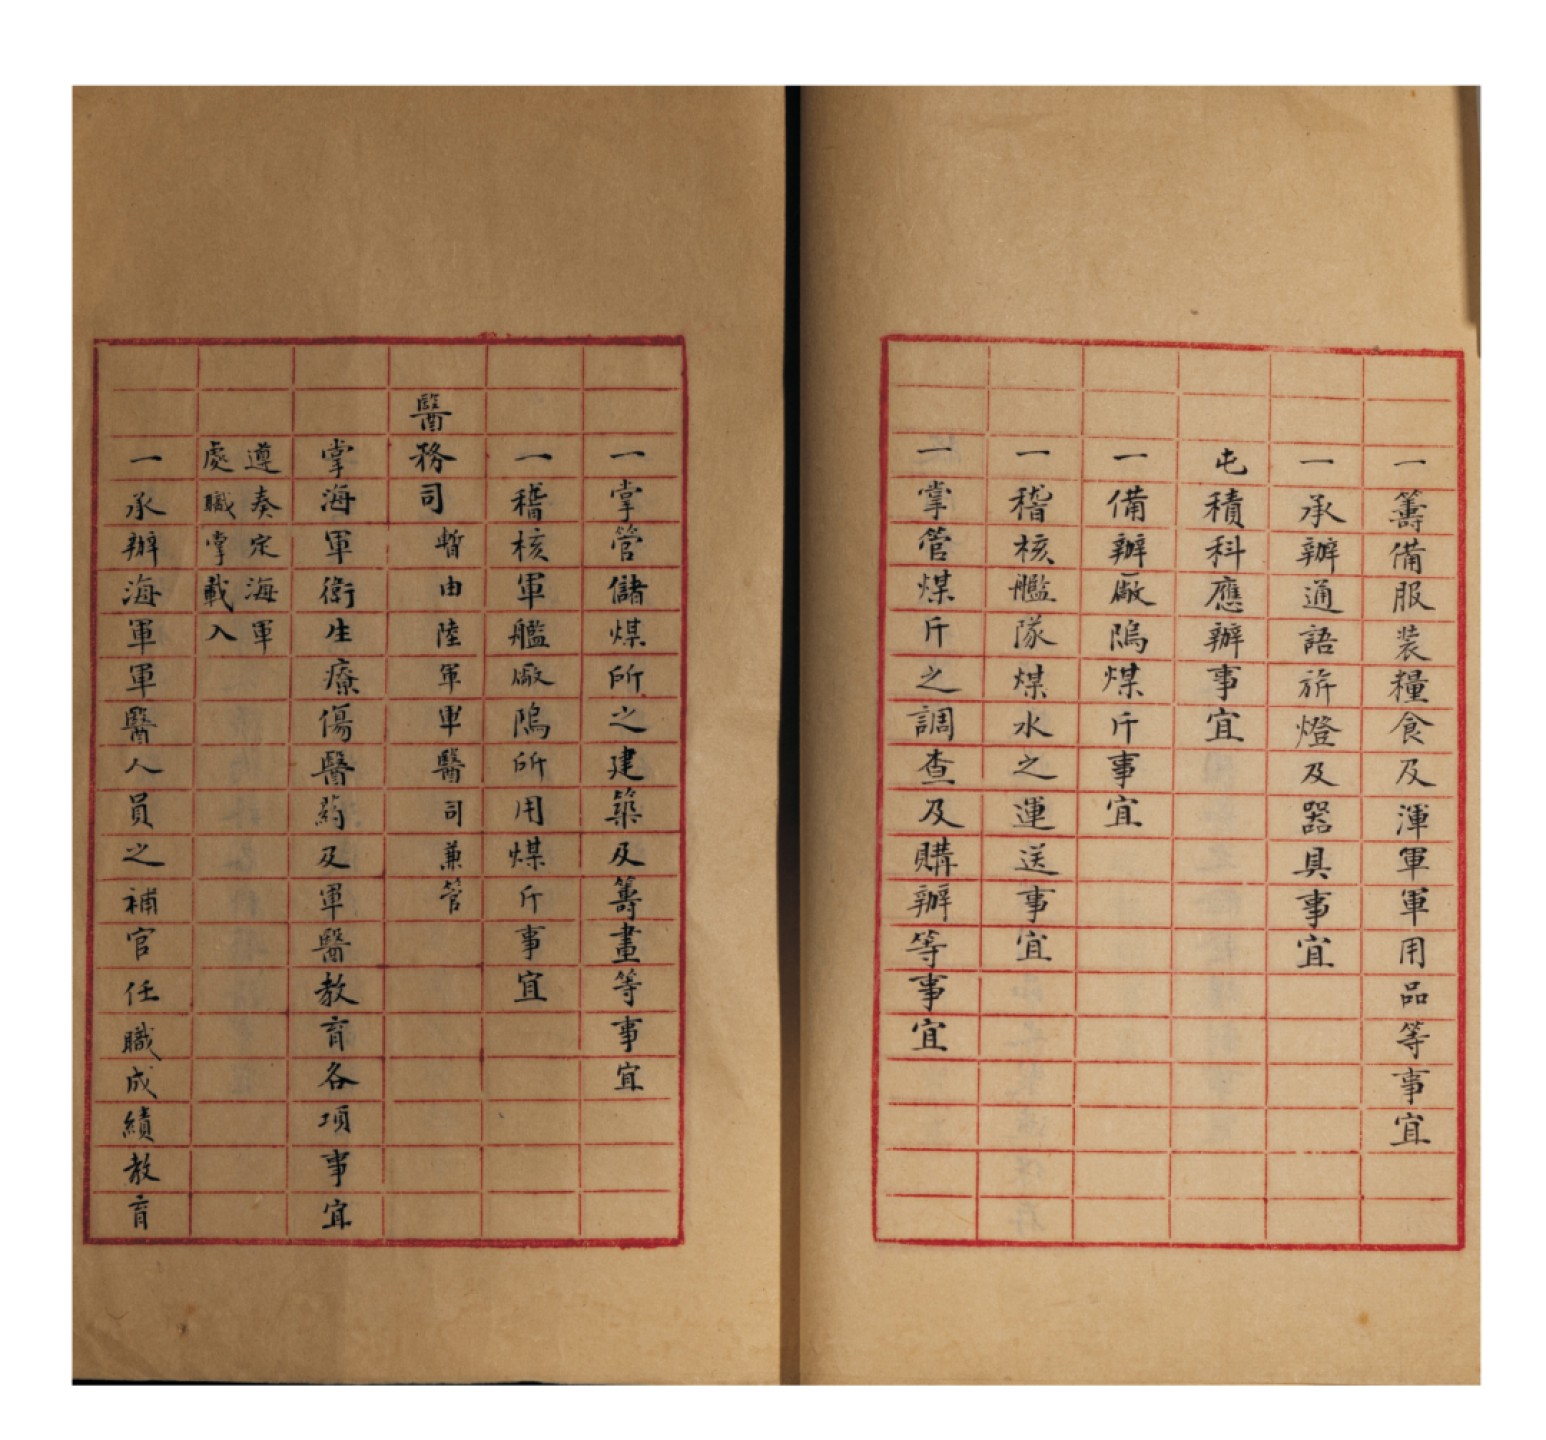 一籌備服裝糧食及渾軍軍用品等事宜
一承辦通語旂燈及器具事宜
屯積科應辦事宜
一備辦廠隖煤斤事宜
一稽核艦隊煤水之運送事宜
一掌管煤斤之調查及購辦等事宜
一掌管儲煤所之建築及籌畫等事宜
一稽核軍艦廠隖所用煤斤事宜
醫務司暫由陸軍軍醫司兼管
掌海軍衛生療傷醫药及軍醫教育各項事宜
遵奏定海軍
處職掌載入
一承辦海軍軍醫人員之補官任職成績教育